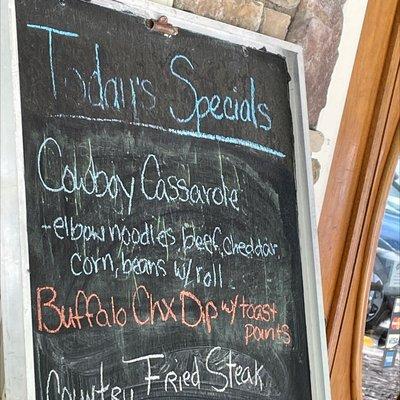 Today's Specials
Cowboy Cassarole
-elbow noodles, beef, cheddar,
corn, beans w/ roll
Buffalo Chx Dip w/ toast
points
Country Fried Steak